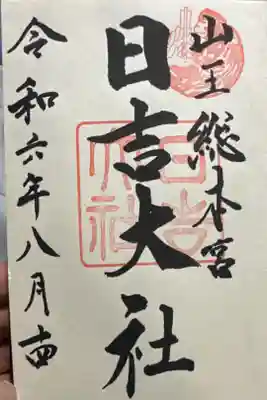 山王総本宮
日吉大社
令和六年八月十四
日吉大社